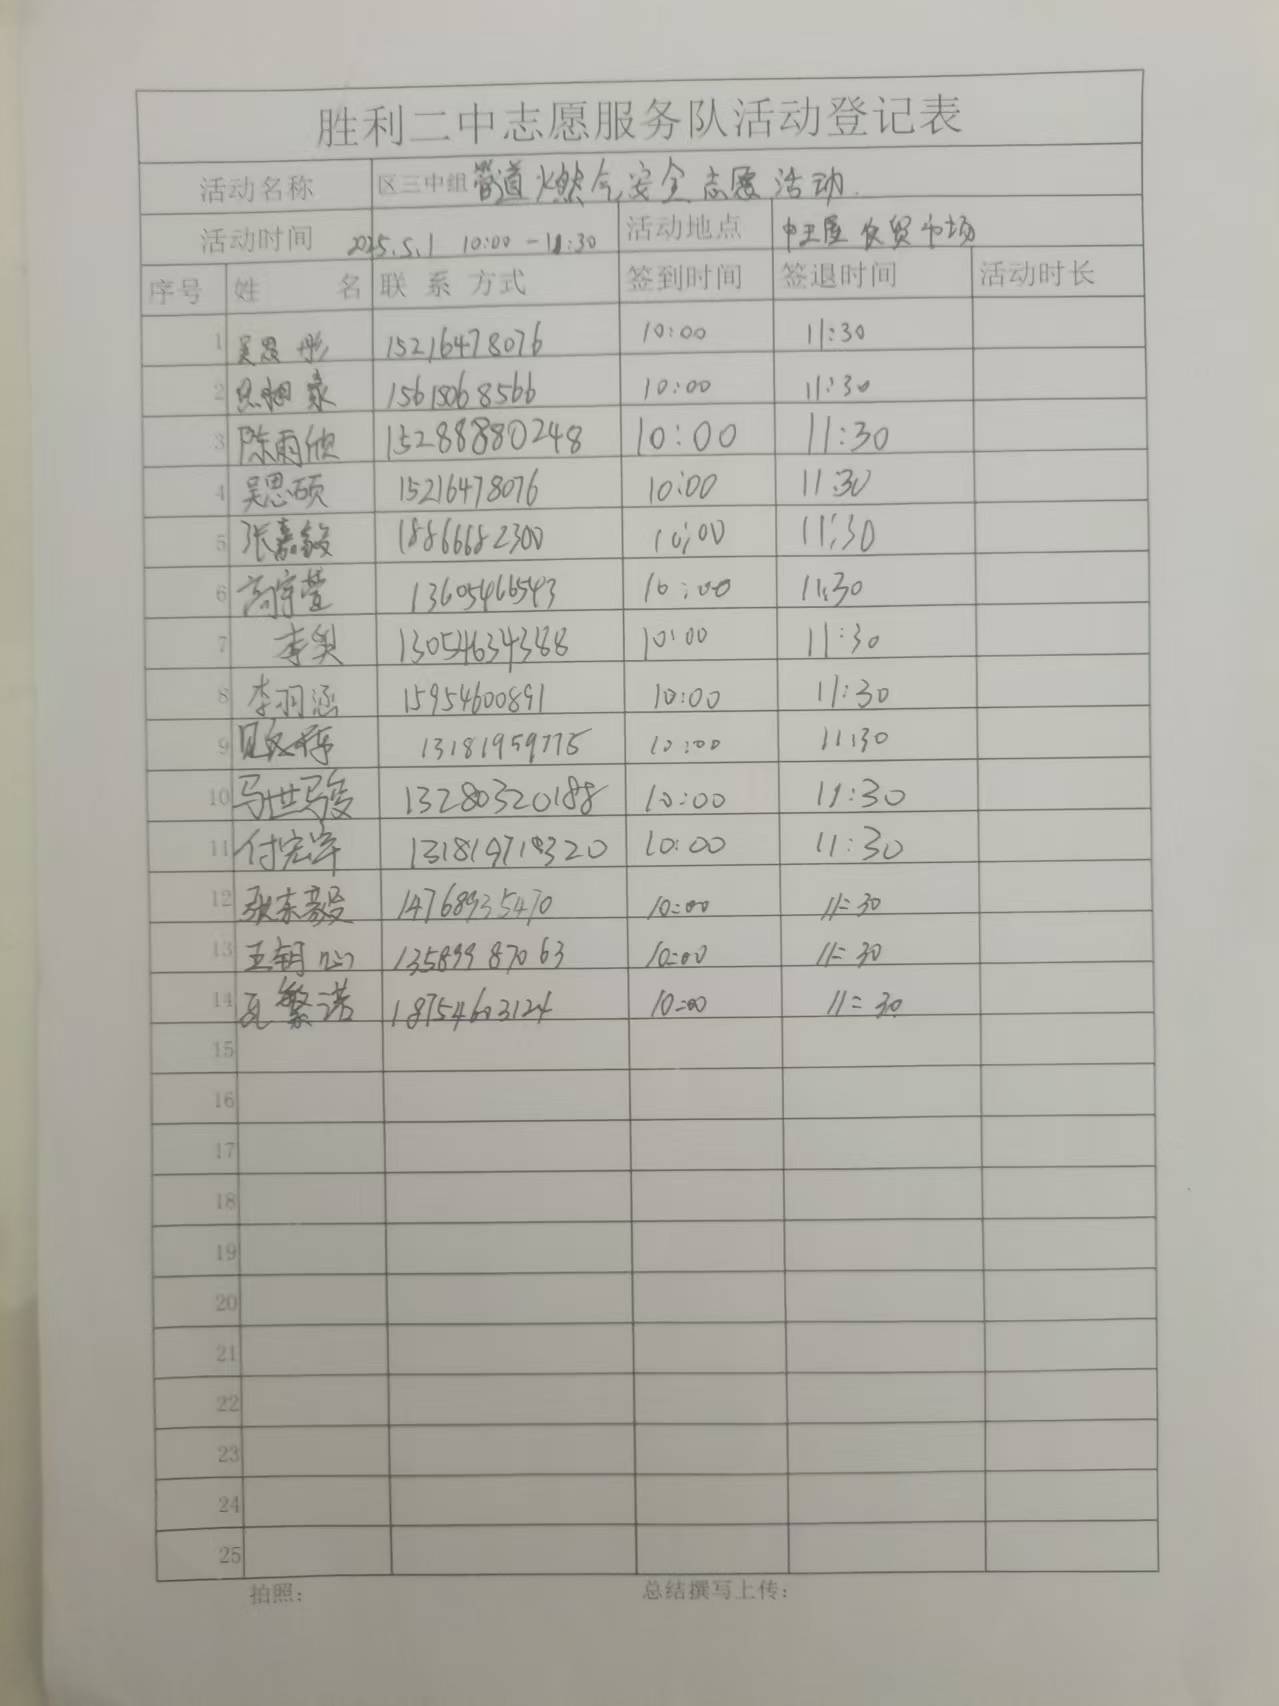 胜利二中志愿服务队活动登记表
活动名称 区三中组 管道燃气安全志愿活动
活动时间 2025.5.1 10:00-11:30 活动地点 中王屋农贸市场
序号 姓 名 联 系 方式 签到时间 签退时间 活动时长
1 吴思彤 15216478076 10:00 11:30
2 15615068566 10:00 11:30
3 陈雨欣 15288880248 10:00 11:30
4 吴思硕 15216478076 10:00 11:30
5 张嘉毅 18866682300 10:00 11:30
6 高宇萱 13605466543 10:00 11:30
7 李奥 13054634388 10:00 11:30
8 李羽涵 15954600891 10:00 11:30
9 13181959775 10:00 11:30
10 马世骏 13280320188 10:00 11:30
11 付宏军 10:00 11:30
12 张东毅 14768935470 10:00 11:30
13 王钥心 13589987063 10:00 11:30
14 繁诺 18754603124 10:00 11:30
15
16
17
18
19
20
21
22
23
24
25
拍照： 总结撰写上传：